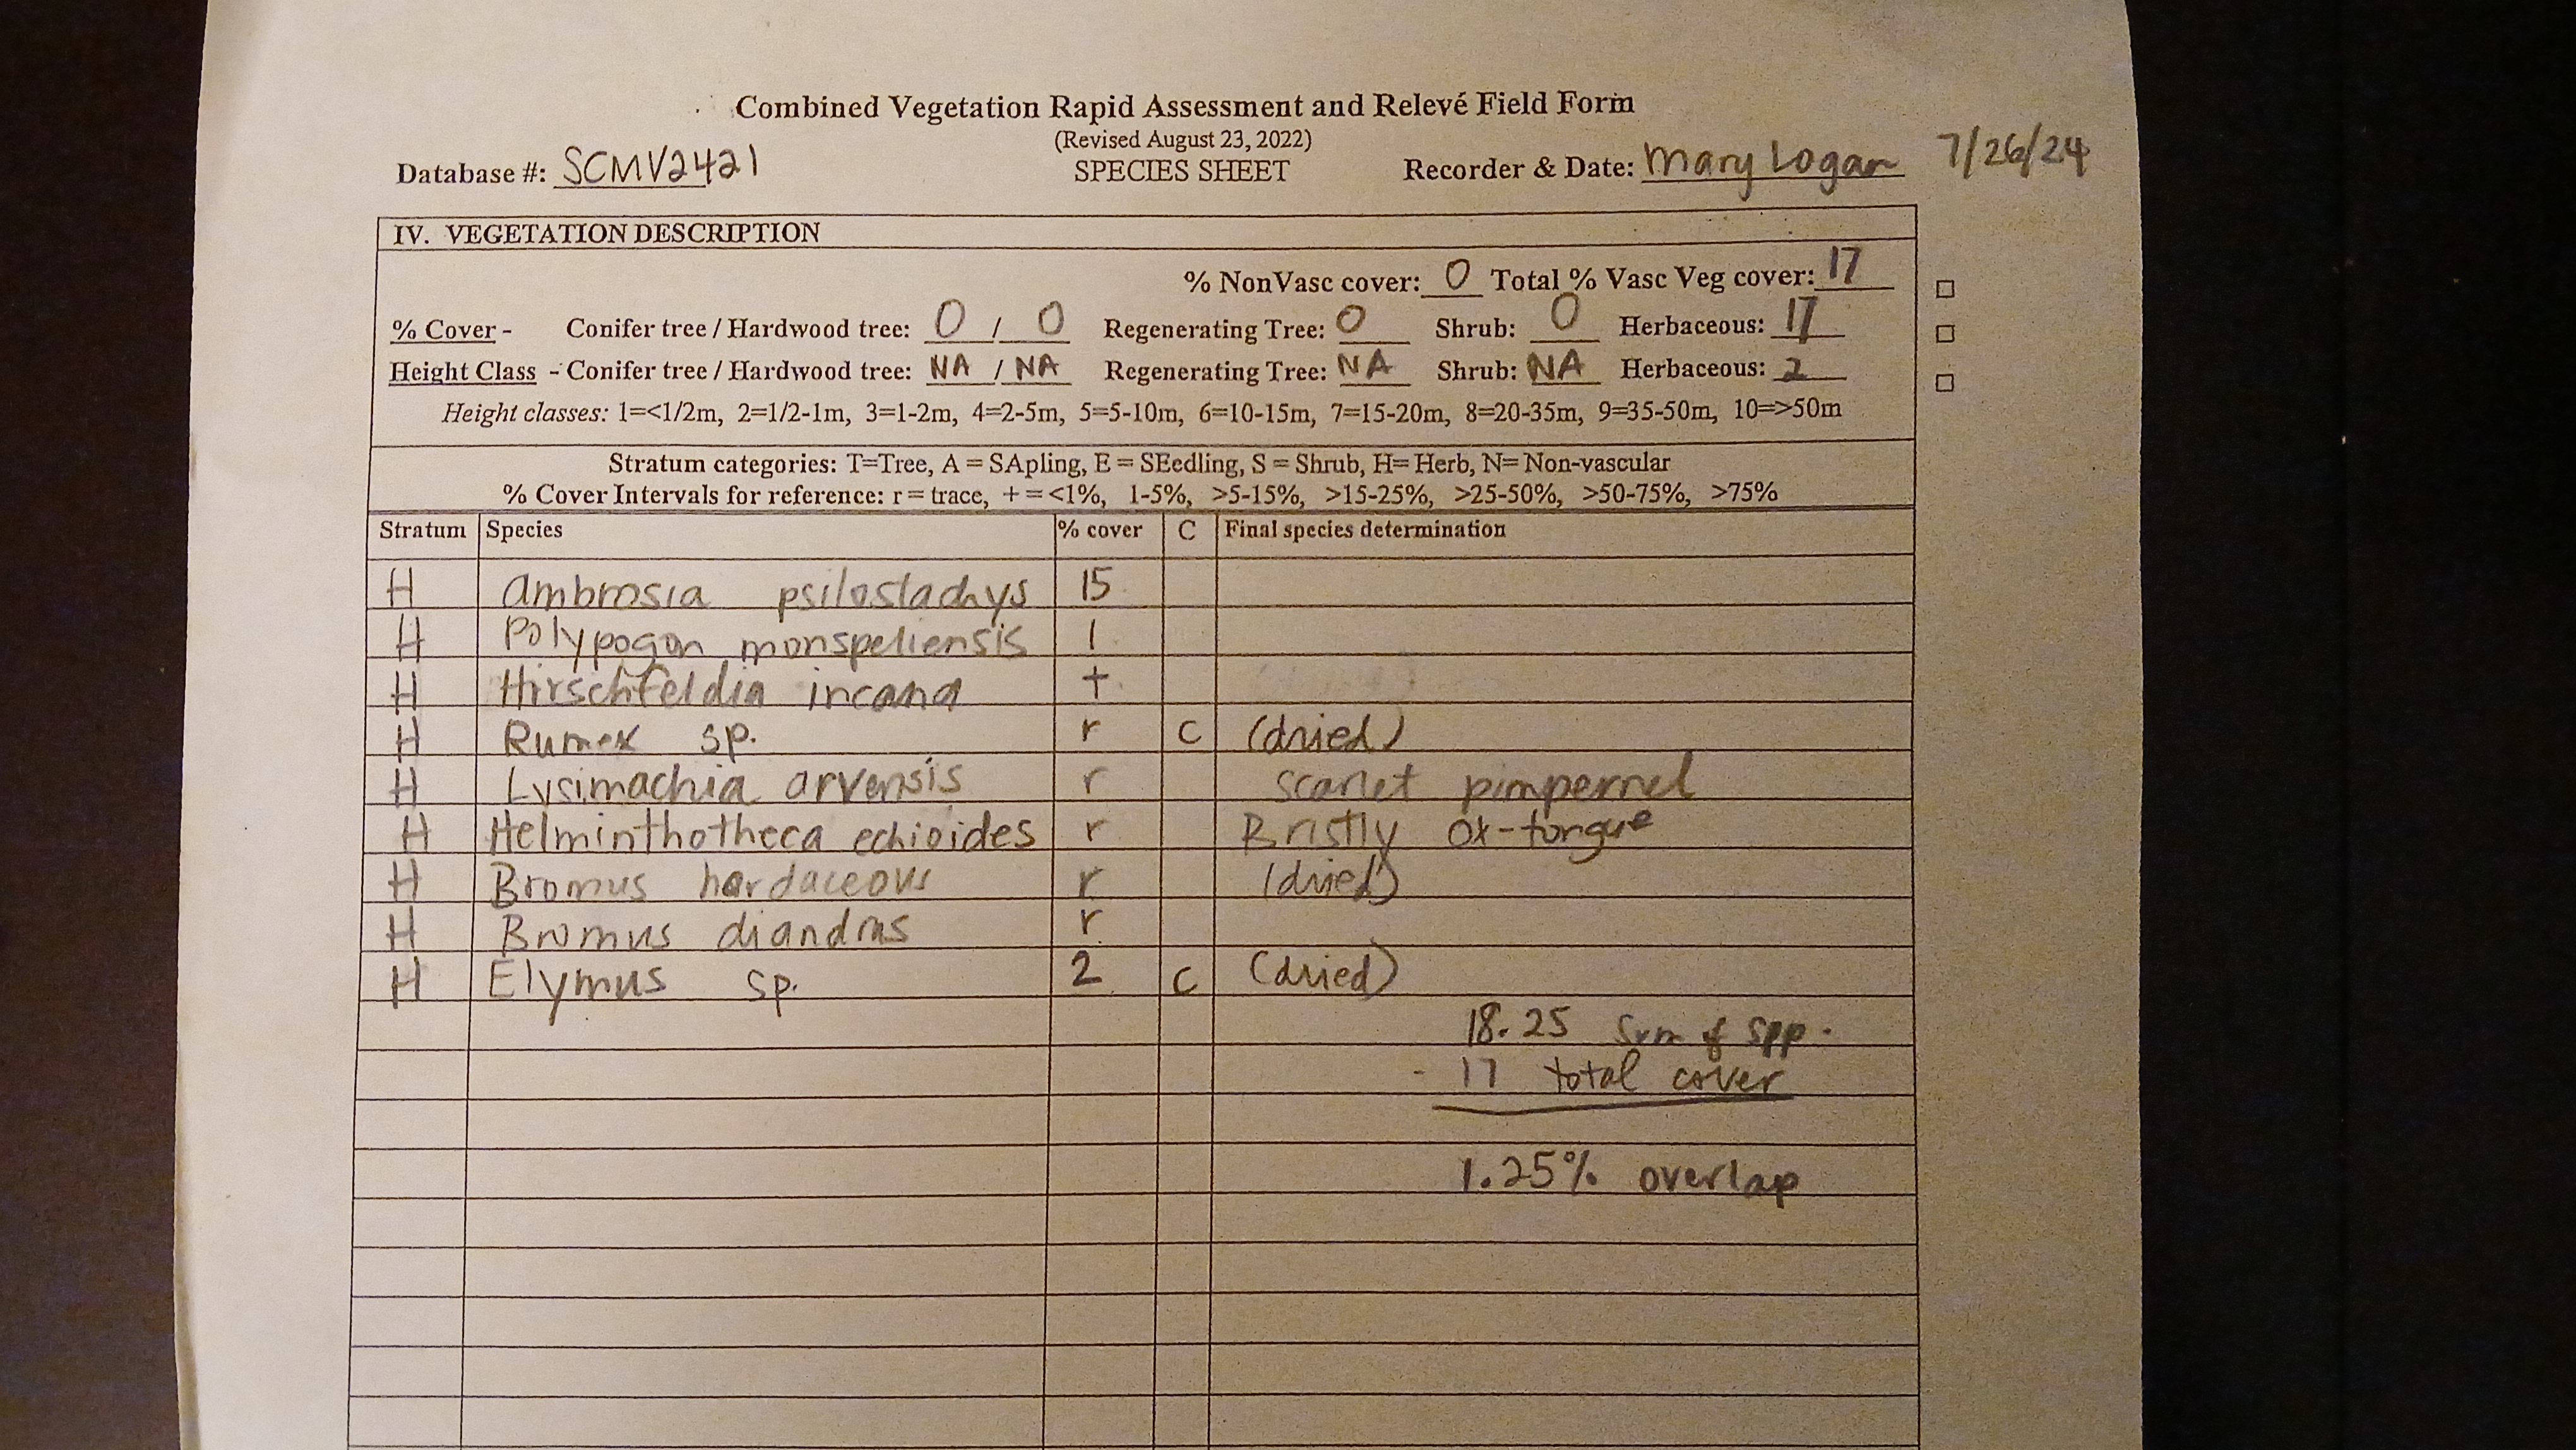 Combined Vegetation Rapid Assessment and Relevé Field Form
(Revised August 23, 2022)
Database #: SCMV2421 SPECIES SHEET Recorder & Date: Mary Logan 7/26/24
IV. VEGETATION DESCRIPTION
% NonVasc cover: 0 Total % Vasc Veg cover: 17
% Cover - Conifer tree / Hardwood tree: 0 / 0 Regenerating Tree: 0 Shrub: 0 Herbaceous: 17
Height Class - Conifer tree / Hardwood tree: NA / NA Regenerating Tree: NA Shrub: NA Herbaceous: 2
Height classes: 1=<1/2m, 2=1/2-1m, 3=1-2m, 4=2-5m, 5=5-10m, 6=10-15m, 7=15-20m, 8=20-35m, 9=35-50m, 10=>50m
Stratum categories: T=Tree, A = SApling, E = SEedling, S = Shrub, H= Herb, N= Non-vascular
% Cover Intervals for reference: r = trace, + = <1%, 1-5%, >5-15%, >15-25%, >25-50%, >50-75%, >75%
Stratum Species % cover C Final species determination
H Ambrosia psilostachys 15
H Polypogon monspeliensis 1
H Hirschfeldia incana +
H Rumex sp. r C (dried)
H Lysimachia arvensis r scarlet pimpernel
H Helminthotheca echioides r Bristly ox-tongue
H Bromus hordaceous r (dried)
H Bromus diandrus r
H Elymus sp. 2 C (dried)
18.25 Sum of spp.
- 17 total cover
1.25% overlap